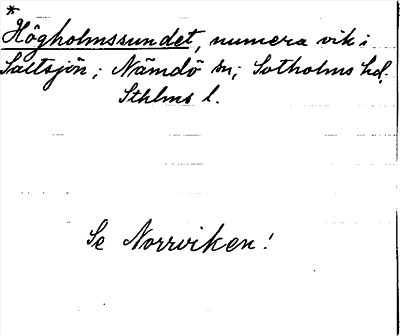 *
Högholmssundet, numera vik i
Saltsjön; Nämdö sn; Sotholms hd.
Sthlms l.
Se Norrviken!